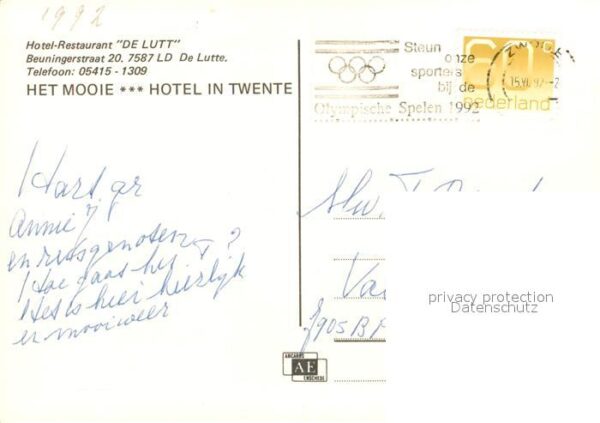 1992
Hotel-Restaurant "DE LUTT"
Beuningerstraat 20. 7587 LD De Lutte.
Telefoon: 05415 - 1309
HET MOOIE *** HOTEL IN TWENTE
Steun
onze
sporters
bij de
Olympische Spelen 1992
60c
nederland
ZWOLLE
Hart. gr
Annie
en reisgenoten
Hoe gaat het ?
Het is hier heerlijk
er mooi weer
Mw.
Va
7905 B
privacy protection
Datenschutz
ABCARDS
AE
ENSCHEDE